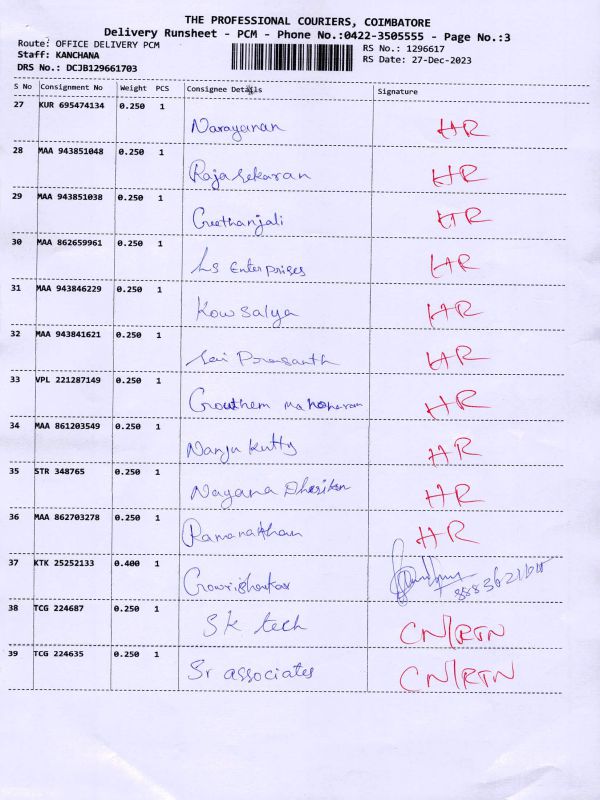 THE PROFESSIONAL COURIERS, COIMBATORE
Delivery Runsheet - PCM - Phone No.:0422-3505555 - Page No.:3
Route: OFFICE DELIVERY PCM
Staff: KANCHANA
DRS No.: DCJB129661703
RS No.: 1296617
RS Date: 27-Dec-2023
S No Consignment No Weight PCS Consignee Details Signature
27 KUR 695474134 0.250 1
Narayanan HR
28 MAA 943851048 0.250 1
Rajasekaran HR
29 MAA 943851038 0.250 1
Geethanjali HR
30 MAA 862659961 0.250 1
Ls Enterprises HR
31 MAA 943846229 0.250 1
Kowsalya HR
32 MAA 943841621 0.250 1
Sai Prasanth HR
33 VPL 221287149 0.250 1
Gouthem Manoharan HR
34 MAA 861203549 0.250 1
Nanju kutty HR
35 STR 348765 0.250 1
Nayana HR
36 MAA 862703278 0.250 1
Ramanathan HR
37 KTK 25252133 0.400 1
Gowrishankar
38 TCG 224687 0.250 1
SK tech CN/RTN
39 TCG 224635 0.250 1
Sr associates CN/RTN